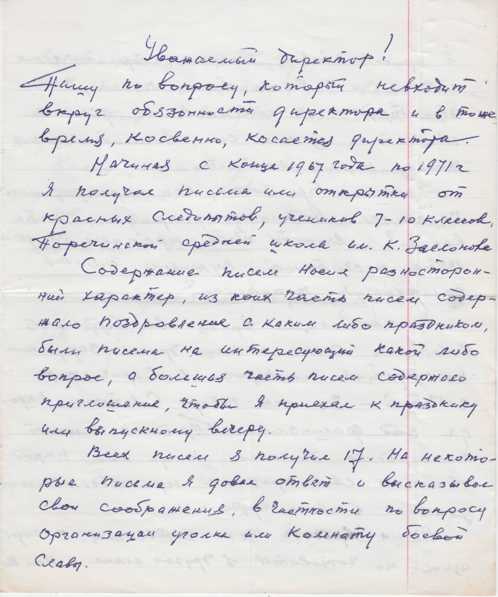 Уважаемый директор!
Пишу по вопросу, который невходит
вкруг обязанностй директора и в тоже
время, косвенно, косается директора.
Начиная с конца 1967 года по 1971 г
я получал письма или открытки от
красных следопытов, учеников 7-10 классов,
Поречинской средней школа им. К. Заслонова
Содержание писем носил разносторон-
ний характер, из коих часть писем содер-
жало поздровление с каким либо праздником,
были письма на интересующий какой либо
вопрос, а большая часть писем содержало
приглошение, чтобы я приехал к празднику
или выпускному вечеру.
Всех писем я получил 17. На некото-
рые письма я довал ответ и высказывал
свои соображения, в частности по вопросу
организации уголка или Комнату боевой
Славы.